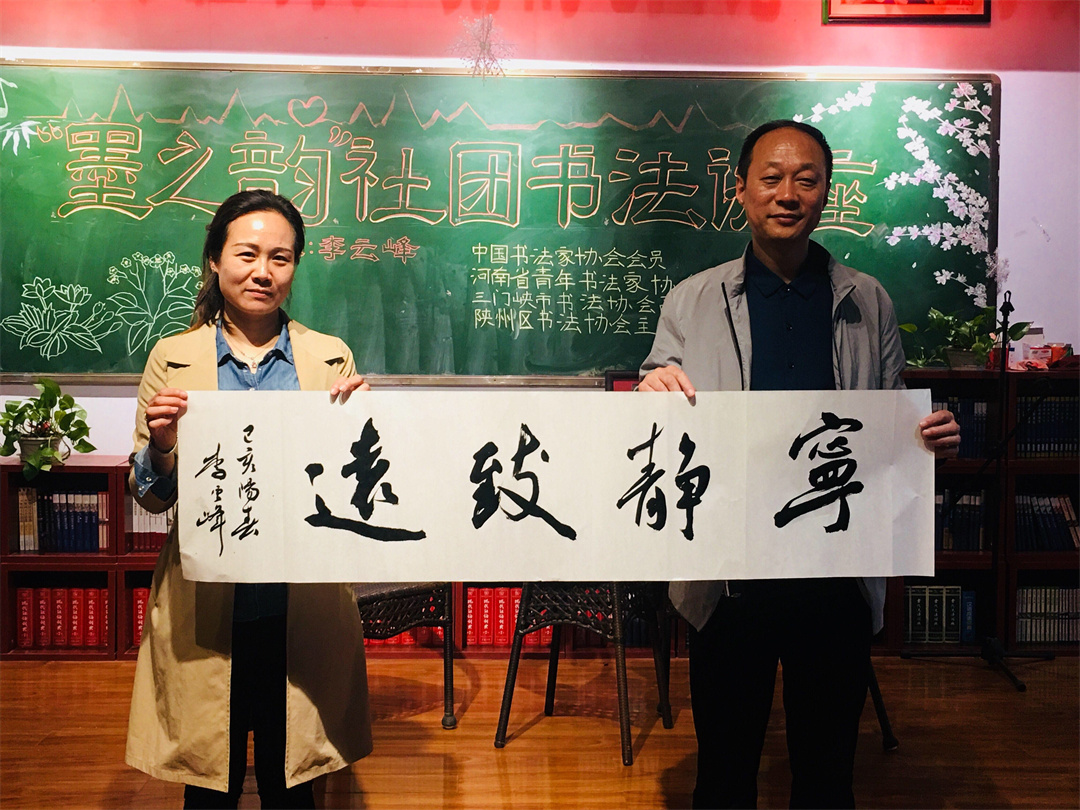 “墨之韵”社团书法讲座
:李云峰
中国书法家协会会员
河南省青年书法家协
三门峡市书法协会
陕州区书法协会主
寧静致遠
己亥陽春
李雲峰